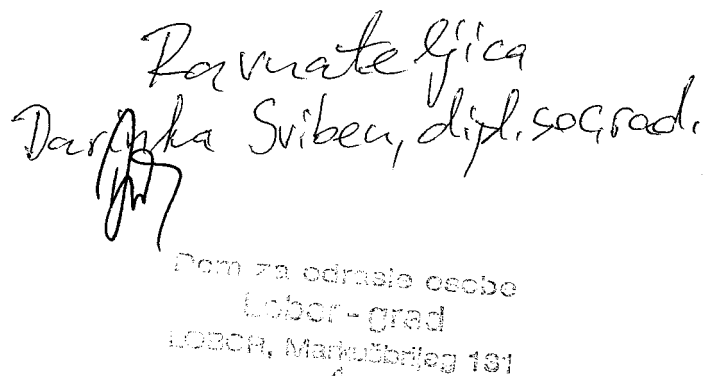 Ravnateljica
Darinka Sviben, dipl.soc.rad.
Dom za odrasle osobe
Lobor-grad
LOBOR, Markušbrijeg 131